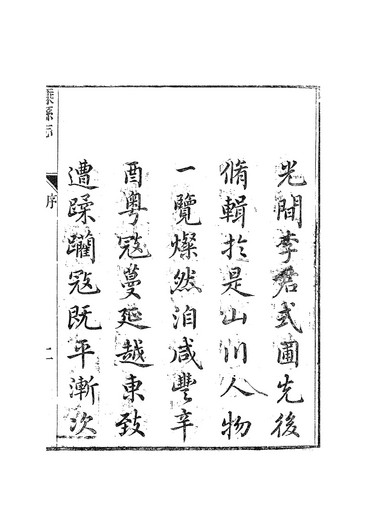 光間李君式圃先後
脩輯於是山川人物
一覽燦然洎咸豐辛
酉粵寇蔓延越東致
遭蹂躪寇既平漸次
嵊縣志
序
二